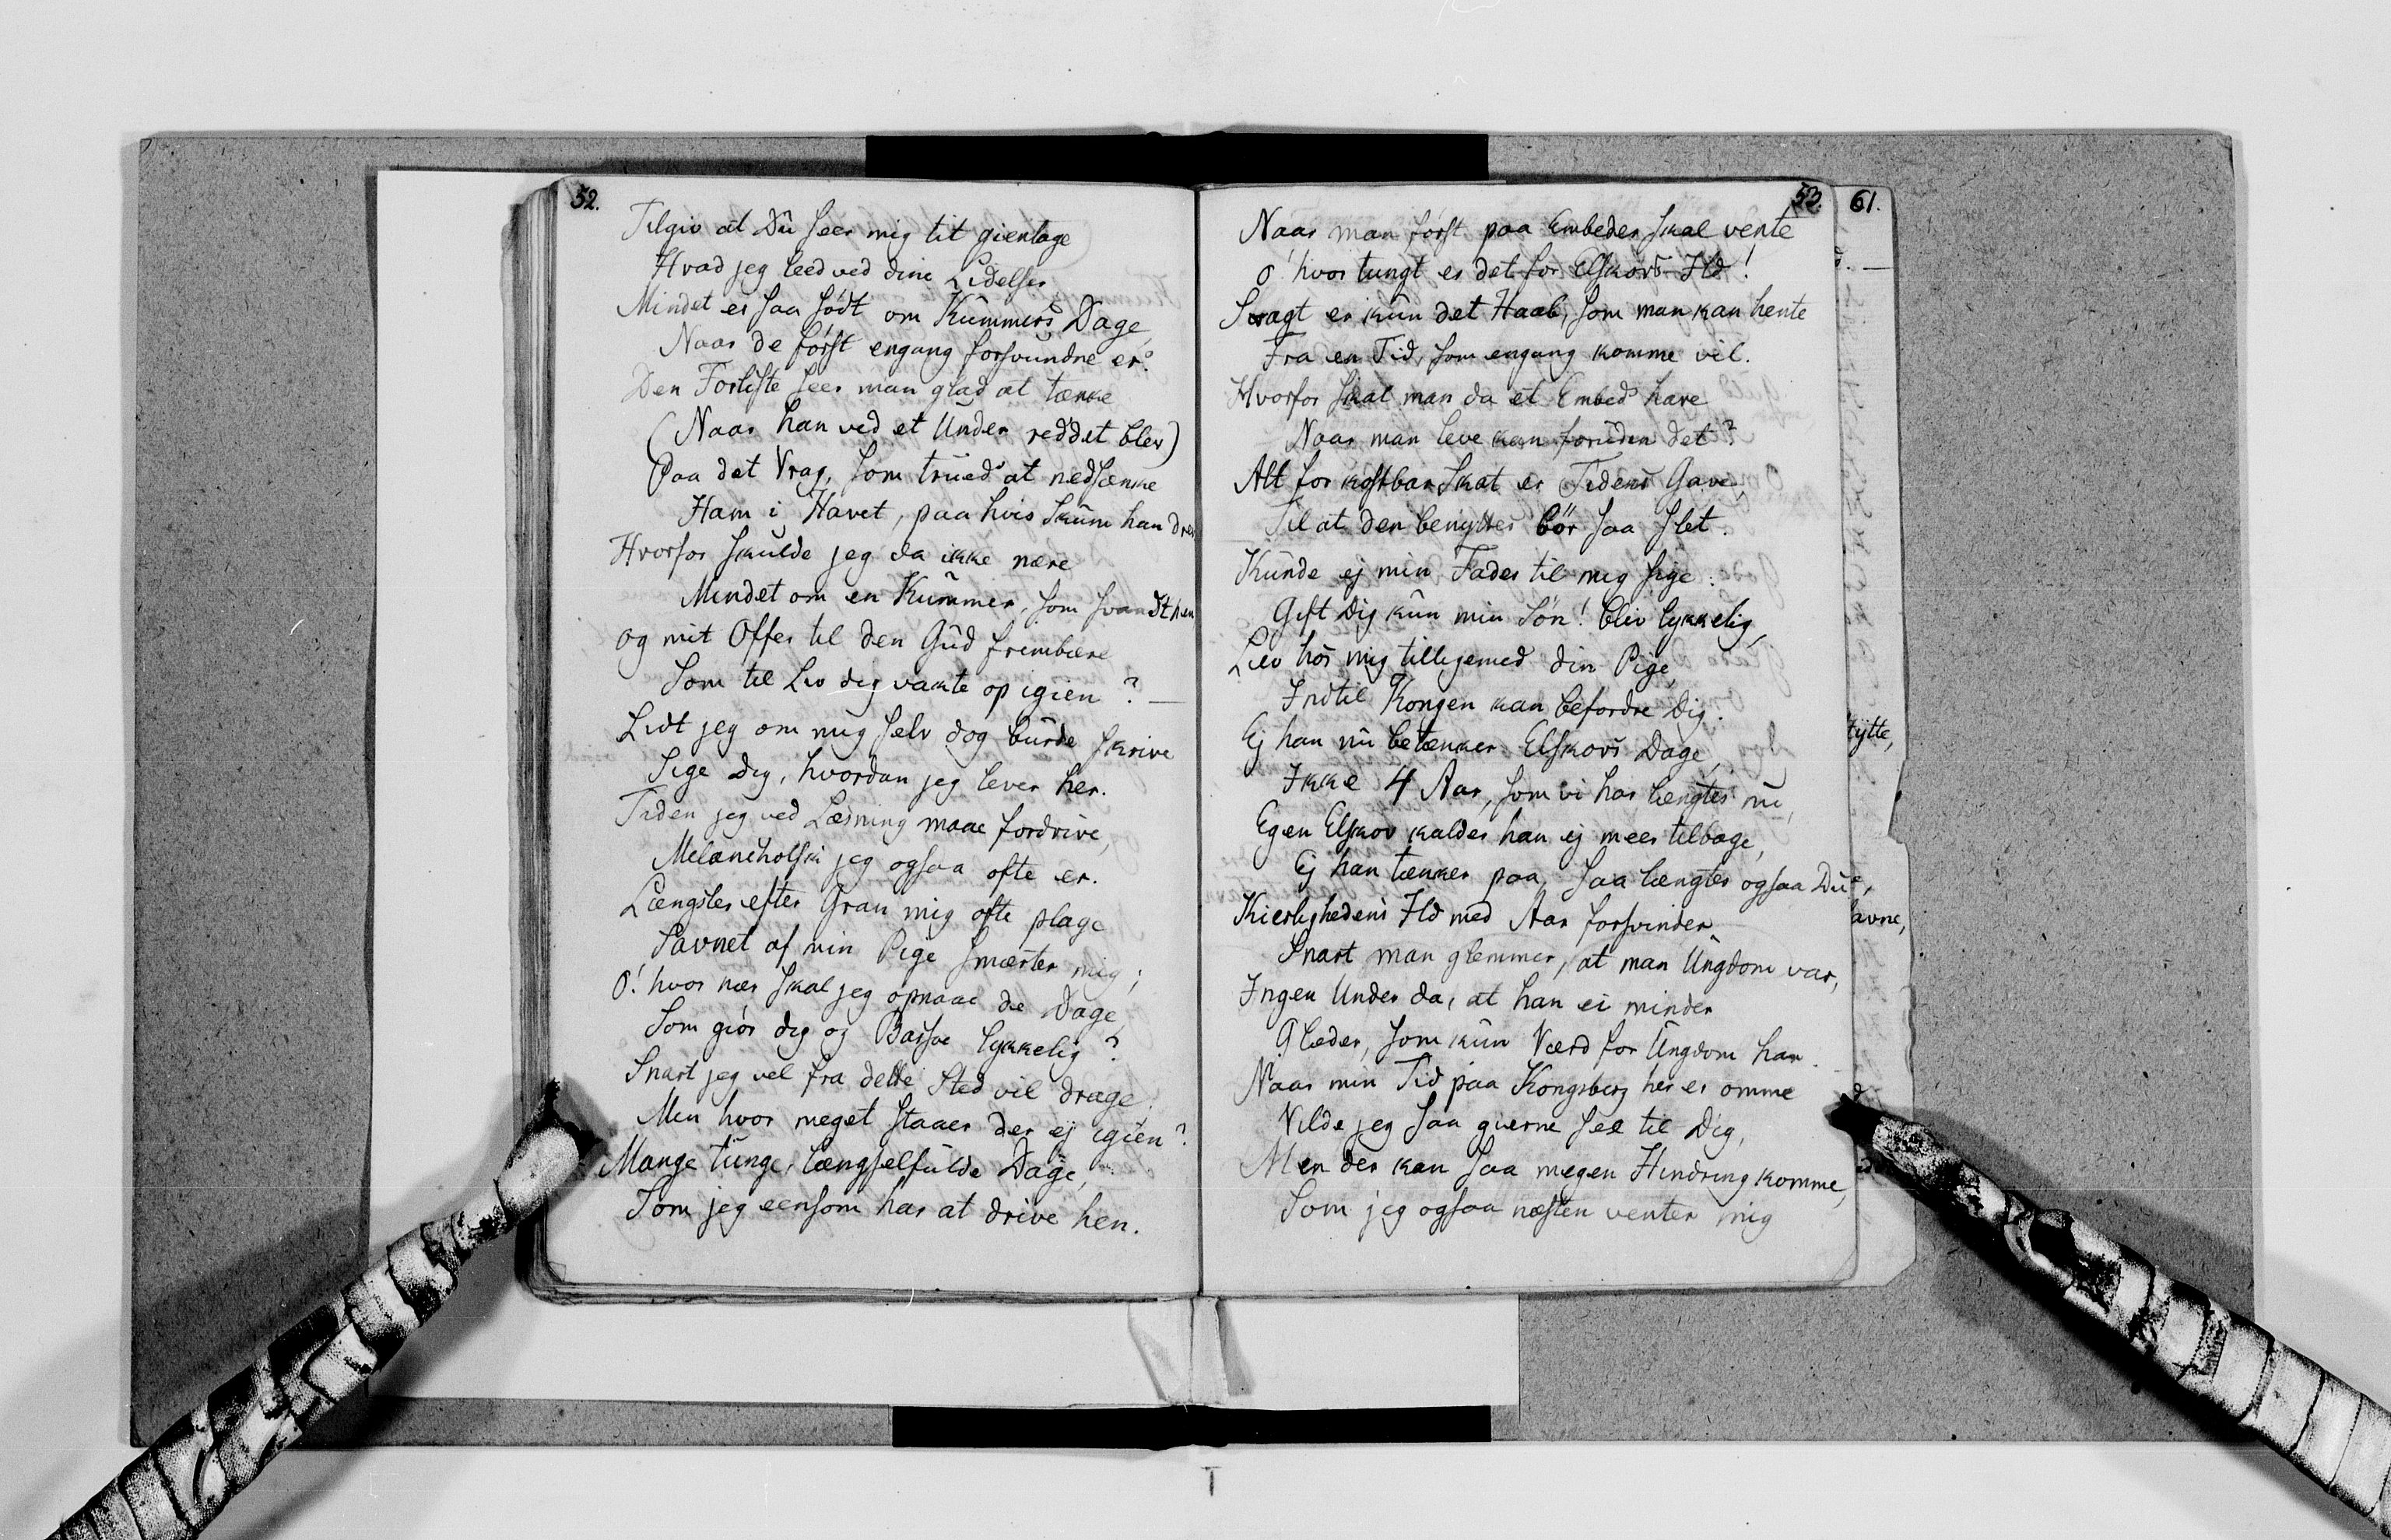 52.
Tilgiv at Du seer mig tit gientage
Hvad jeg leed ved dine Lidelser
Mindet er saa sødt om Kummers Dage,
Naar de først engang forsvundne er.
Den Forliste seer man glad at tænke
(Naar han ved et Under reddet blev)
Paa det Vrag, som trued' at nedsænke
Ham i Havet, paa hvis Skum han drev
Hvorfor skulde jeg da ikke nære
Mindet om en Kummer, som svandt hen
og mit Offer til den Gud frembære
Som til Liv dig vakte op igien? —
Lidt jeg om mig selv dog burde skrive
Sige dig, hvordan jeg lever her.
Tiden jeg ved Læsning maae fordrive,
Melancholsk jeg ogsaa ofte er.
Længsler efter Gran mig ofte plage
Savnet af min Pige smærter mig;
O! hvor nær skal jeg opnaae de Dage,
Som giør dig og Basse lykkelig?
Snart jeg vel fra dette Sted vil drage,
Men hvor meget staaer der ej igien?
Mange tunge, længselfulde Dage,
Som jeg eensom har at drive hen.
53.
Naar man først paa Embeder skal vente
O! hvor tungt er det for Elskovs Ild!
Svagt er kun det Haab, som man kan hente
Fra en Tid, som engang komme vil.
Hvorfor skal man da et Embed' have
Naar man leve kan foruden det?
Alt for kostbar Skat er Tidens Gave,
Til at den benyttes bör saa slet.
Kunde ej min Fader til mig sige:
Gift Dig kun min Sön! bliv lykkelig,
Lev hos mig tilligemed din Pige,
Indtil Kongen kan befordre Dig.
Ej han nu betænker Elskovs Dage,
Ikke 4 Aar, som vi har længtes nu,
Egen Elskov kalder han ej meer tilbage,
Ej han tænker paa, saa længtes ogsaa Du
Kierlighedens Ild med Aar forsvinder
Snart man glemmer, at man Ungdom var,
Ingen Under da, at han ei minder
Glæder, som kun Værd for Ungdom har.
Naar min Tid paa Kongsberg her er omme
Vilde jeg saa gierne see til Dig,
Men der kan saa megen Hindring komme,
Som jeg ogsaa næsten venter mig
61.
tytte,
avne,